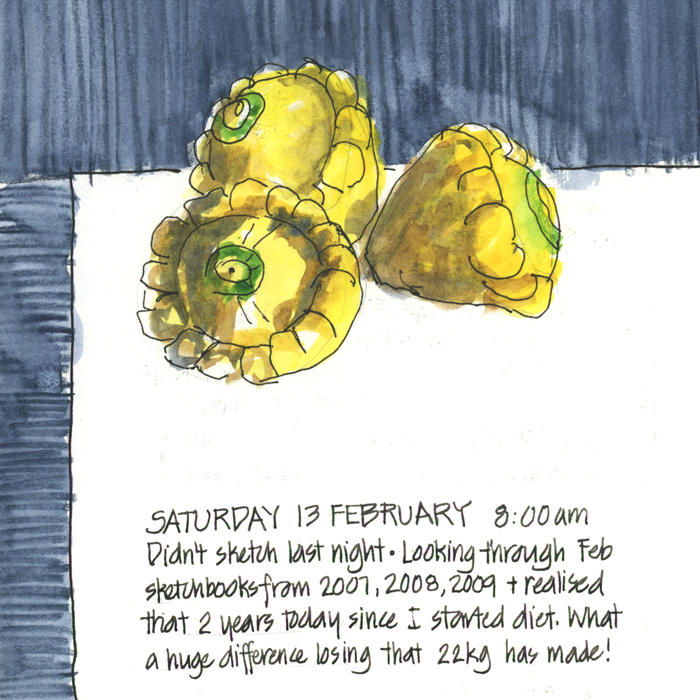 SATURDAY 13 FEBRUARY 8:00am
Didn't sketch last night • Looking through Feb
sketchbooks from 2007, 2008, 2009 + realised
that 2 years today since I started diet. What
a huge difference losing that 22kg has made!